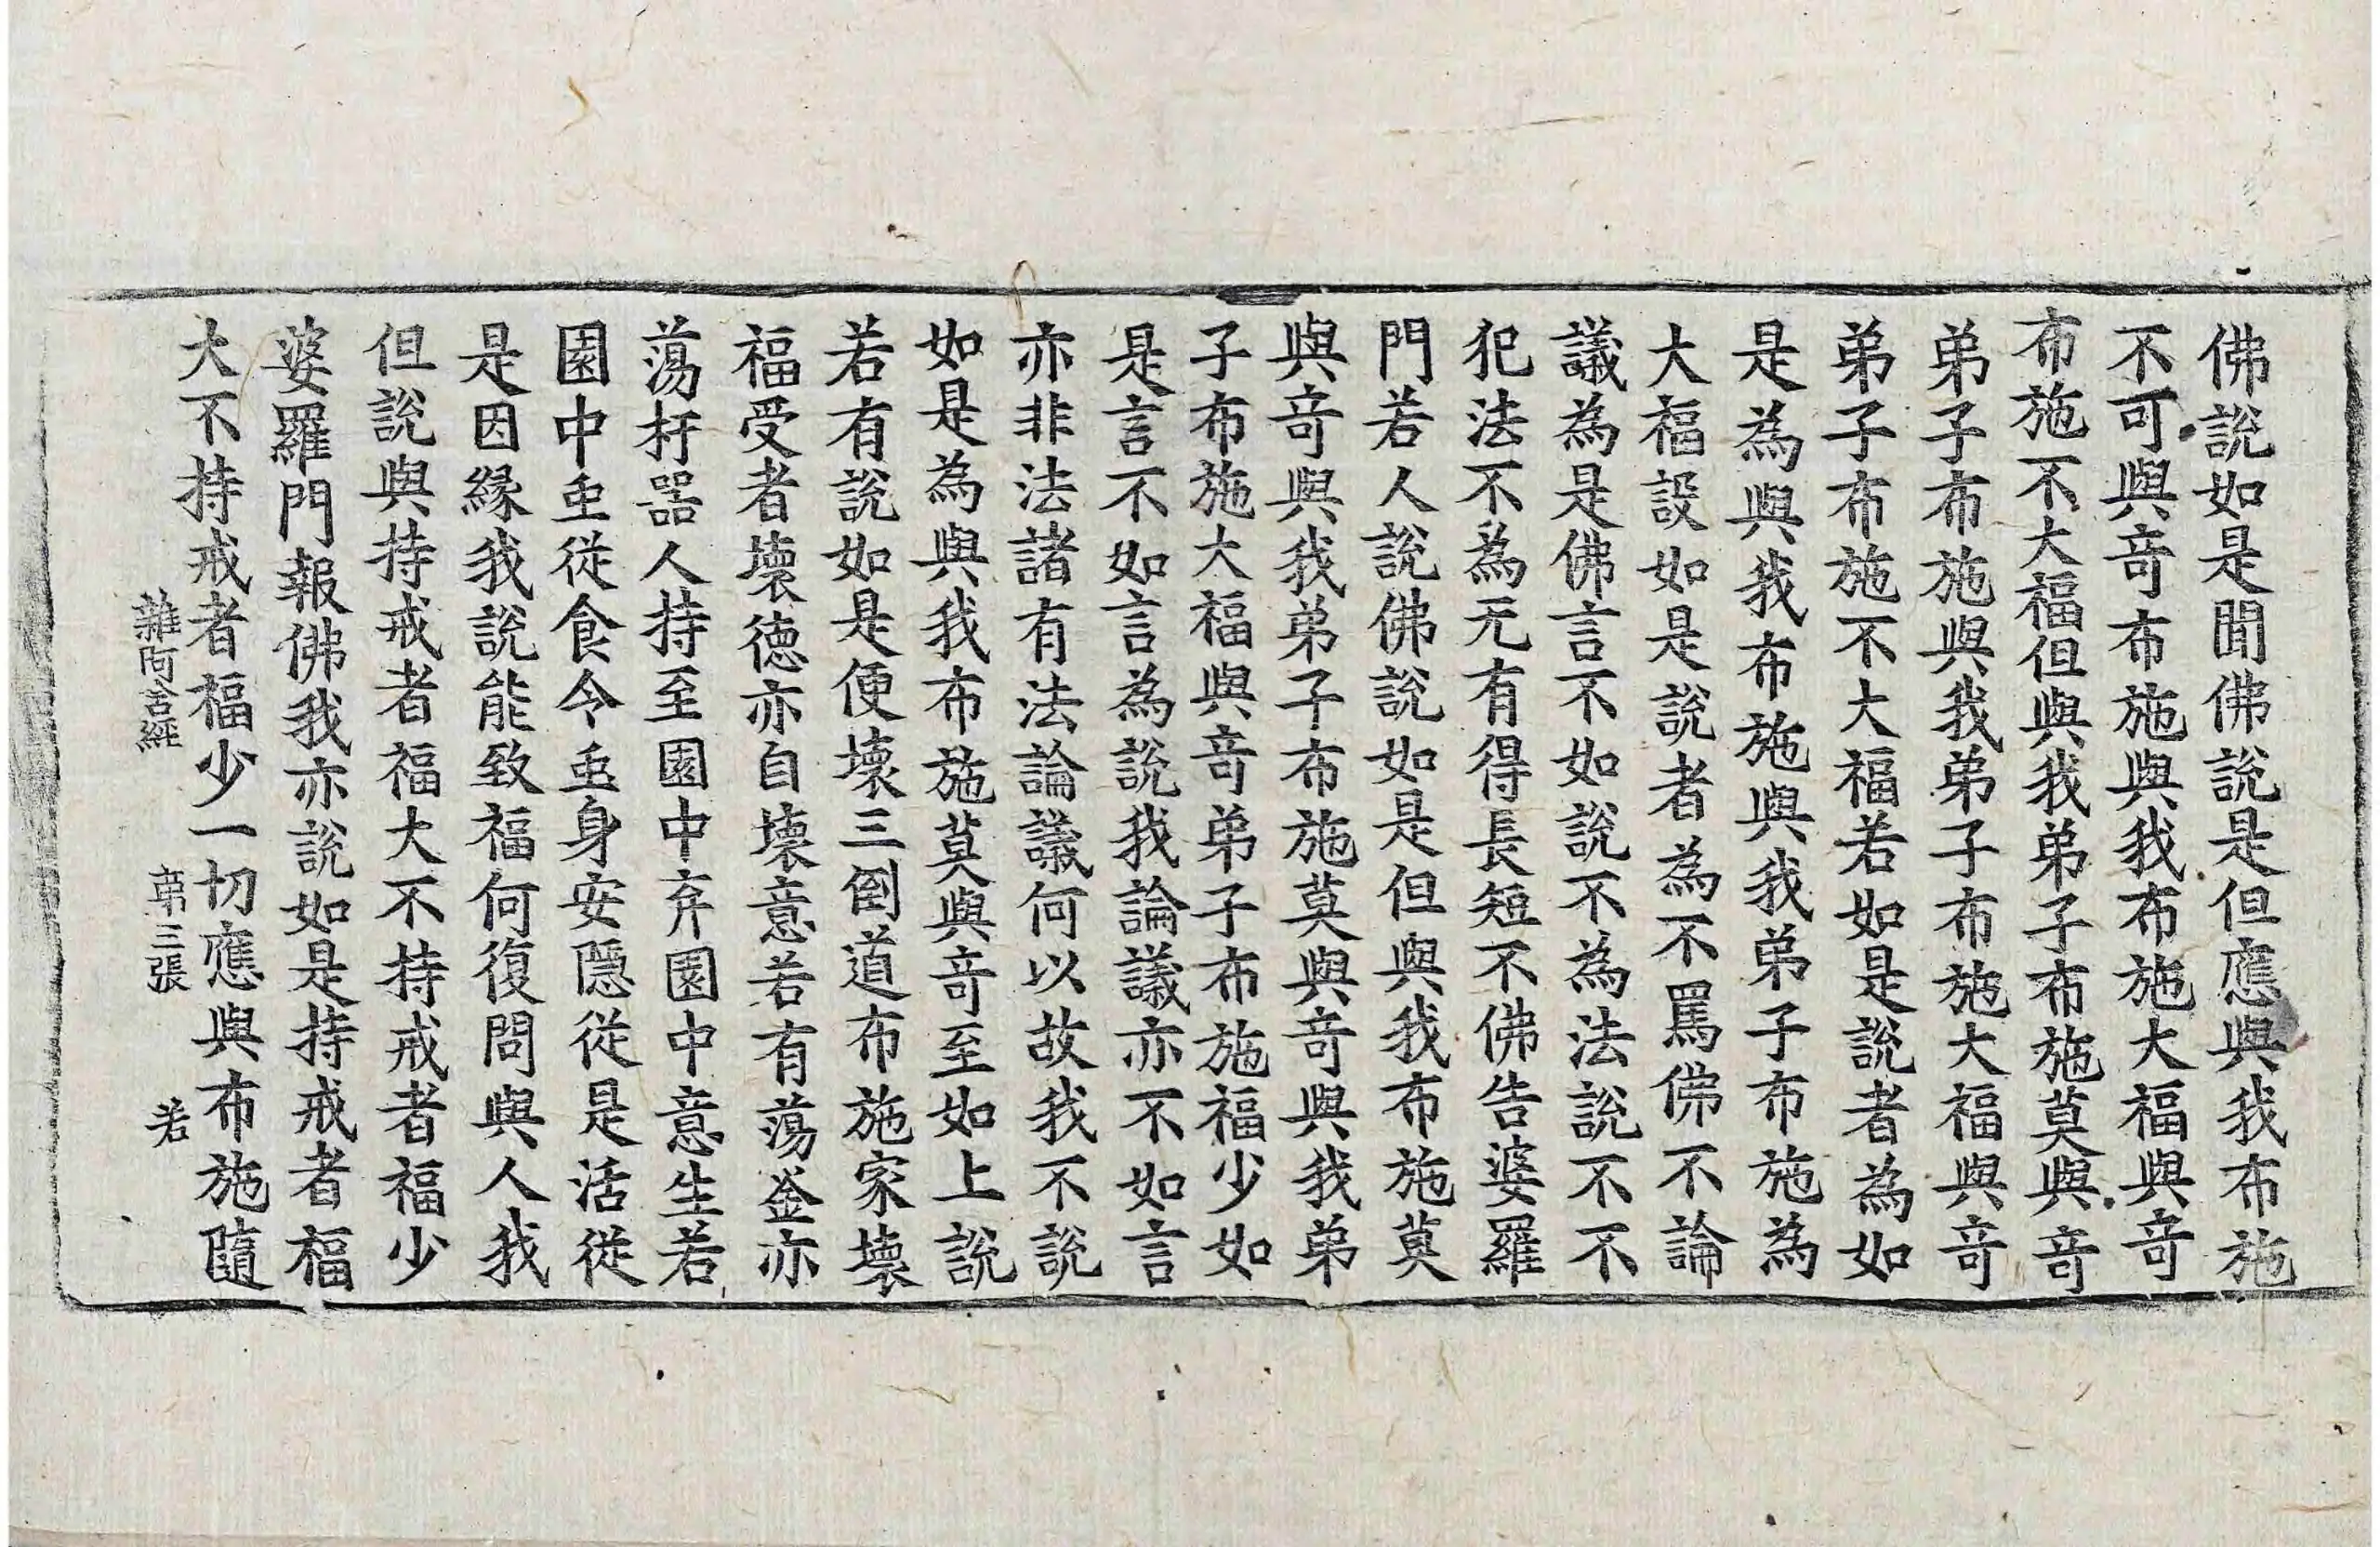 佛說如是聞佛說是但應與我布施
不可與竒布施與我布施大福與竒
布施不大福但與我弟子布施莫與竒
弟子布施與我弟子布施大福與竒
弟子布施不大福若如是說者為如
是為與我布施與我弟子布施為
大福設如是說者為不罵佛不論
議為是佛言不如說不為法說不不
犯法不為无有得長短不佛告婆羅
門若人說佛說如是但與我布施莫
與竒與我弟子布施莫與竒與我弟
子布施大福與竒弟子布施福少如
是言不如言為說我論議亦不如言
亦非法諸有法論議何以故我不說
如是為與我布施莫與竒至如上說
若有說如是便壞三倒道布施家壞
福受者壞德亦自壞意若有蕩釜亦
蕩杅器人持至園中弃園中意生若
園中䖝從食令䖝身安隱從是活從
是因緣我說能致福何復問與人我
但說與持戒者福大不持戒者福少
婆羅門報佛我亦說如是持戒者福
大不持戒者福少一切應與布施隨
雜阿含經 苐三張 若